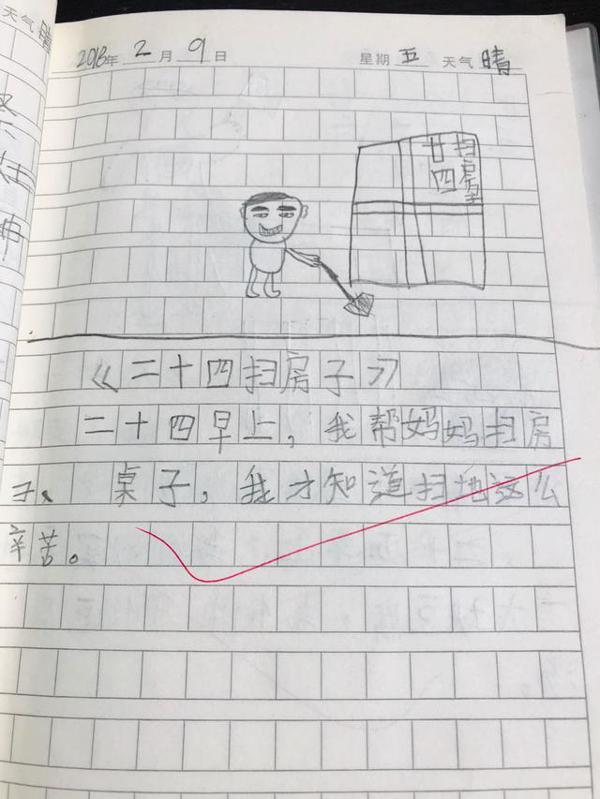 2018年 2 月 9 日 星期 五 天气 晴
扫房
廿四
《二十四扫房子》
二十四早上，我帮妈妈扫房
子、桌子，我才知道扫地这么
辛苦。
天气 晴